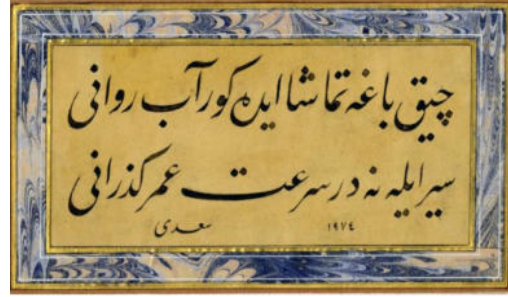 چیق باغه تماشا ایده کور آب روانی
سیر ایله نه در سرعت عمر کذرانی
سعدی ١٩٧٤